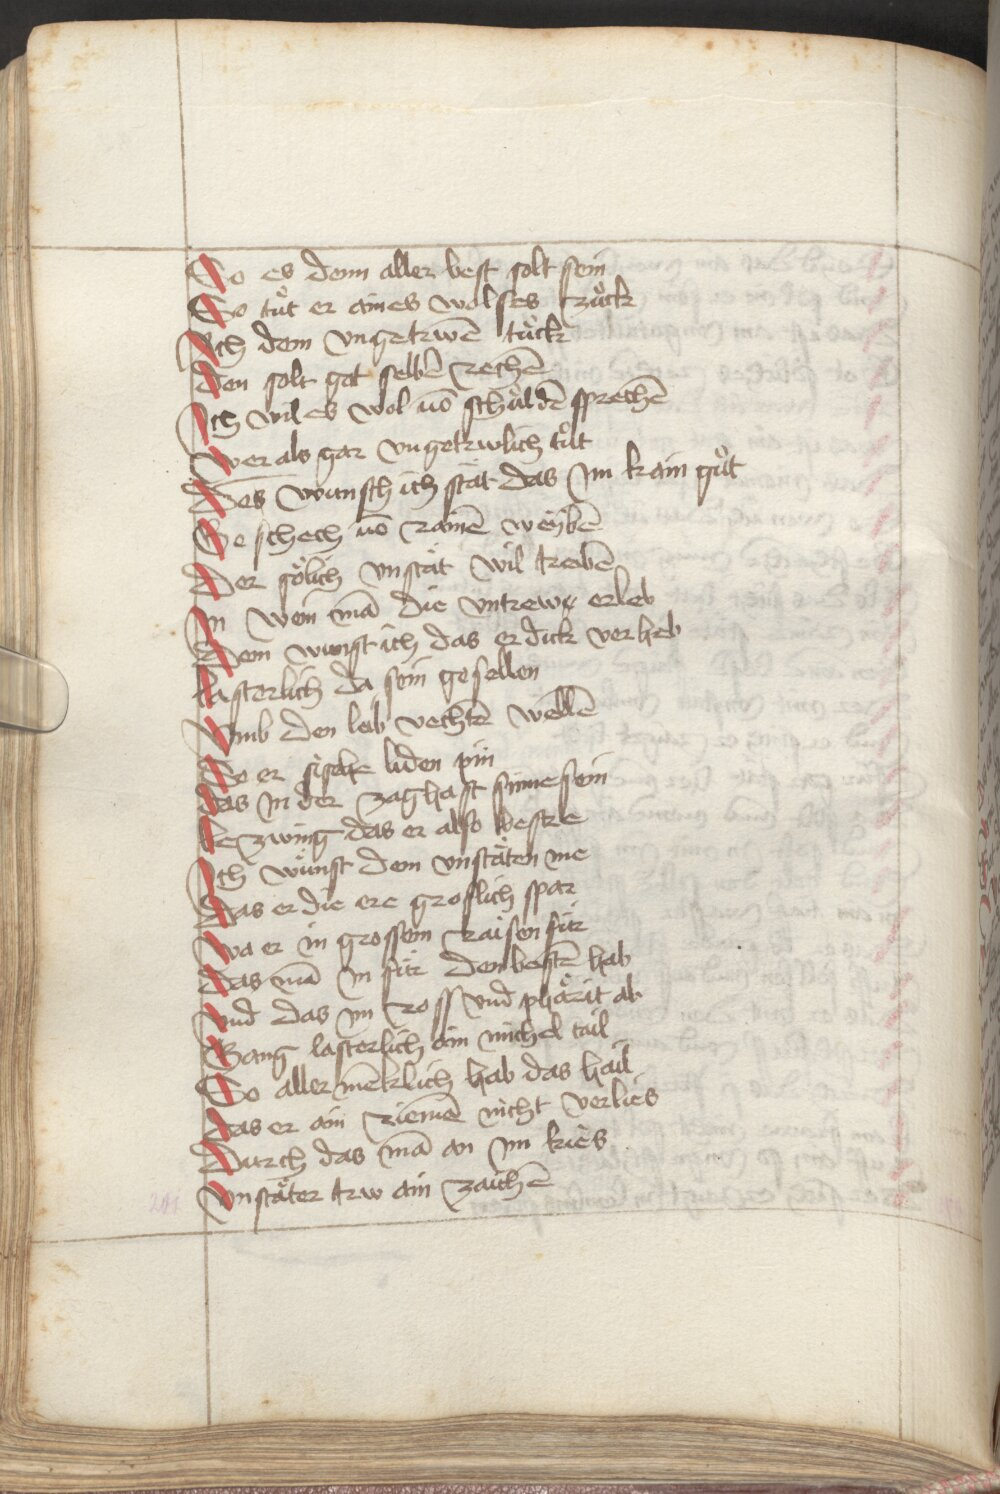 So es denn aller best solt sein
So tuͦt er aines wolfes zuͦck
Ich dem vngetrwē tuͤck
den solt got selbē rechē
Ich wil es wol vō schuͤldē sprechē
wer als gar vngetrwlich tuͦt
Des wunsch ich stät das Im kain guͦt
Geschech vō rainē weÿbē
Der soͤlich vnstät wil treibē
In wem mā die vntrew erleb
Dem wunst ich das er dick verheb
lasterlich da sein gesellen
Vmb den leib vechtē wellē
So er solt liden pin
das In der zaghaft sinne sein
bezwing das er also bestee
Ich wuͤnst dem vnstäten me
das er die ere groslich spar
wa er in grossem raisen far
das mā In für den bestē hab
vnd das im ross vnd phärit ab
Gang lasterlich ain michel tail
So aller mēklich hab das hail
das er ain riemē nicht verlies
Durch das mā an im kies
vnstäter trw ain zaichē
201